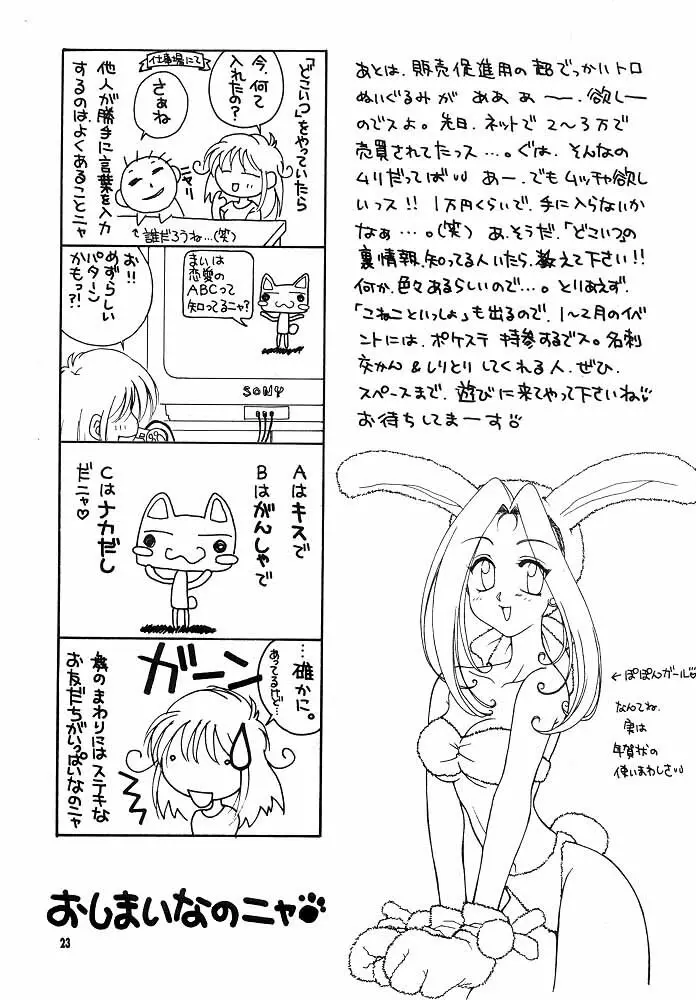 あとは、販売促進用の超でっかいトロ
ぬいぐるみが ああ ぁ 〜ー、欲しー
のでスよ。先日、ネットで 2〜3万で
売買されてたっス…。ぐは、そんなの
ムリだってばいい あー、でもムッチャ欲し
いっス!! 1万円くらいで、手に入らないか
なぁ…。(笑) あ、そうだ、「どこいつ」の
裏情報、知ってる人いたら、教えて下さい!!
何か、色々あるらしいので…。とりあえず、
「こねこといっしょ」も出るので、1〜2月のイベ
ントには、ポケステ 持参するでス。名刺
交かん & しりとり してくれる人、ぜひ、
スペースまで、遊びに来てやって下さいね
お待ちしてまーす
「どこいつ」をやっていたら
今、何て
入れたの?
仕事場にて
さぁね
ニヤリ
他人が勝手に言葉を入力
するのは、よくあることニャ
↑誰だろうね…(笑)
まいは
恋愛の
ABCって
知ってるニャ?
お!!
めずらしい
パターン
かもっ?!
SONY
Aはキスで
Bはがんしゃで
Cはナカだし
だニャ♡
…確かに。
あってるけど…
ガーン
僕のまわりにはステキな
お友だちがいっぱいなのニャ
←ぽぽんガール♡
なんてね、
実は
年賀状の
使いまわしさ
おしまいなのニャ
23